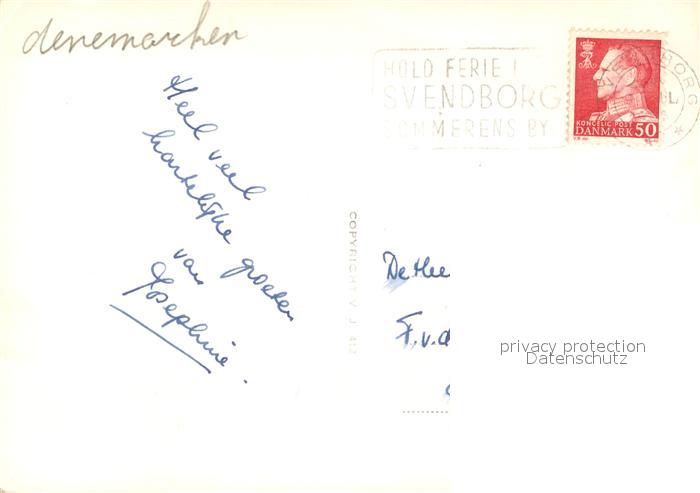 denemarken
HOLD FERIE I
SVENDBORG
SOMMERENS BY
KONGELIG POST
DANMARK 50
Heel veel
hartelijke groeten
van
Josephine.
COPYRIGHT V. J. 412
De Hee
F. v. d
privacy protection
Datenschutz